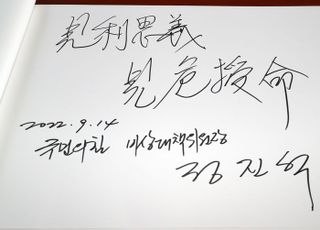 見利思義
見危授命
2022. 9. 14
국민의힘 비상대책위원장
정진석